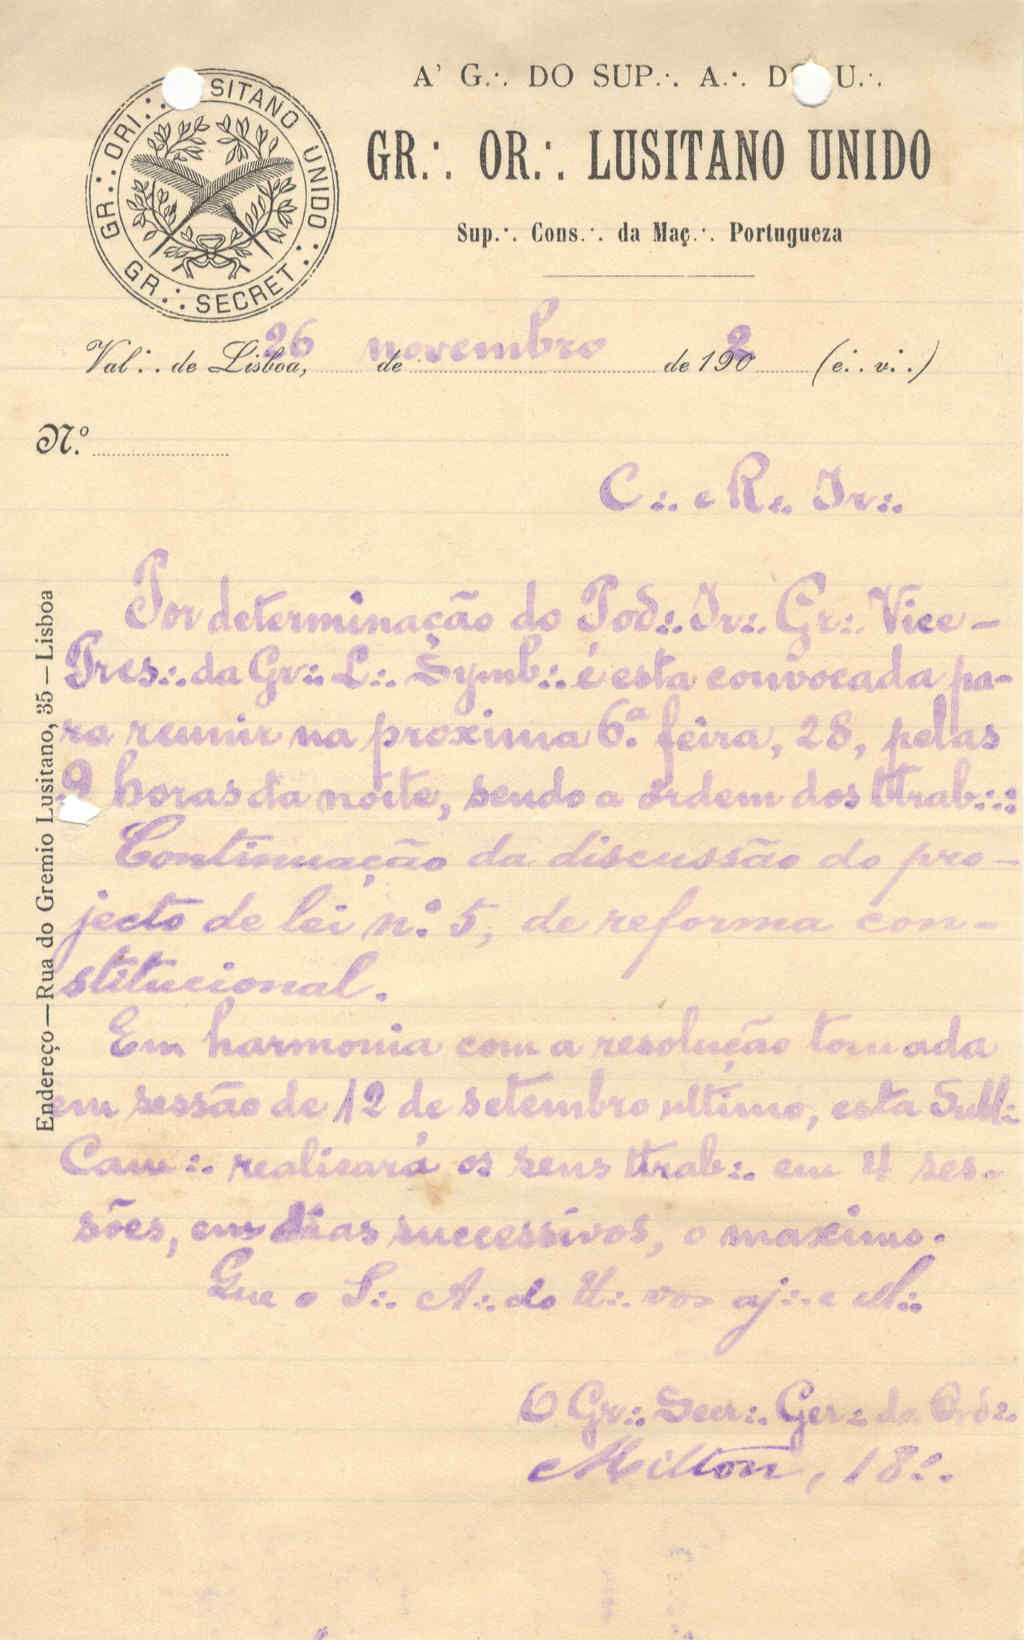 A' G.·. DO SUP.·. A.·. D U.·.
GR.·. OR.·. LUSITANO UNIDO
Sup.·. Cons.·. da Maç.·. Portugueza
GR.·. ORI.·. SITANO UNIDO.·.
GR.·. SECRET.·.
Val.·. de Lisboa, 26 de novembro de 1902 (e.·. v.·.)
N.º
C.·. e R.·. Ir.·.
Por determinação do Pod.·. Ir.·. Gr.·. Vice-
Pres.·. da Gr.·. L.·. Symb.·. é esta convocada pa-
ra reunir na proxima 6.ª feira, 28, pelas
9 horas da noite, sendo a ordem dos ttrab.·.:
Continuação da discussão do pro-
jecto de lei n.º 5, de reforma con-
stitucional.
Em harmonia com a resolução tomada
em sessão de 12 de setembro ultimo, esta Subl.·.
Cam.·. realisará os seus ttrab.·. em 4 ses-
sões, em dias successivos, o maximo.
Que o S.·. A.·. do U.·. vos aj.·. e
O Gr.·. Secr.·. Ger.·. da Ord.·.
Milton, 18.·.
Endereço—Rua do Gremio Lusitano, 35—Lisboa